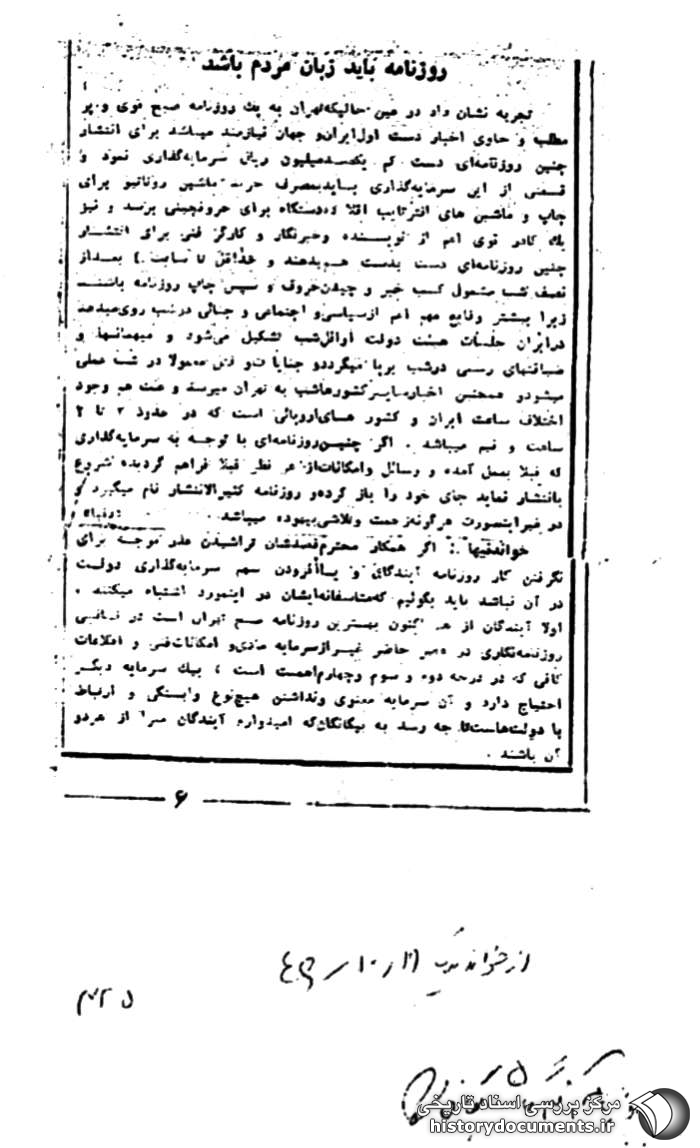 روزنامه باید زبان مردم باشد
تجربه نشان داد در عین حالیکه تهران به یک روزنامه صبح قوی و پر
مطلب و حاوی اخبار دست اول ایران و جهان نیازمند میباشد برای انتشار
چنین روزنامه‌ای دست کم یکصد میلیون ریال سرمایه‌گذاری نمود و
قسمتی از این سرمایه‌گذاری باید بمصرف خرید ماشین روتاتیو برای
چاپ و ماشین های انترتایپ اقلا ده دستگاه برای حروفچینی برسد و نیز
یک کادر قوی اعم از نویسنده و خبرنگار و کارگر فنی برای انتشار
چنین روزنامه‌ای دست بدست هم بدهند و حداقل تا ساعت بعد از
نصف شب مشمول کسب خبر و چیدن حروف و سپس چاپ روزنامه باشند
زیرا بیشتر وقایع مهم اعم از سیاسی و اجتماعی و جنائی در شب روی میدهد
در ایران جلسات هیئت دولت اوائل شب تشکیل می‌شود و میهمانیها و
ضیافتهای رسمی در شب برپا میگردد و جنایات و معمولا در شب عملی
میشود و همچنین اخبار سایر کشورها شب به تهران میرسد و علت هم وجود
اختلاف ساعت ایران و کشور های اروپائی است که در حدود ۲ تا ۲
ساعت و نیم میباشد . اگر چنین روزنامه‌ای با توجه به سرمایه‌گذاری
که قبلا بعمل آمده و وسائل و امکانات از هر نظر قبلا فراهم گردیده شروع
بانتشار نماید جای خود را باز کرده و روزنامه کثیرالانتشار نام میگیرد و
در غیر اینصورت هرگونه زحمت و تلاشی بیهوده میباشد .
خواندنیها : اگر همکار محترم قصدشان تراشیدن عذر موجه برای
نگرفتن کار روزنامه آیندگان و یا افزودن سهم سرمایه‌گذاری دولت
در آن نباشد باید بگوئیم که متاسفانه ایشان در اینمورد اشتباه میکنند .
اولا آیندگان از هم اکنون بهترین روزنامه صبح تهران است در ثانی
روزنامه‌نگاری در عصر حاضر غیر از سرمایه مادی و امکانات فنی و اطلاعات
کافی که در درجه دوم و سوم و چهارم اهمیت است ، بیک سرمایه دیگر
احتیاج دارد و آن سرمایه معنوی و نداشتن هیچ نوع وابستگی و ارتباط
با دولت‌هاست تا چه رسد به بیگانگان که امیدواریم آیندگان مبرا از هر دو
آن باشند .
۶
از خواندنیها
۳۲۵
مرکز بررسی اسناد تاریخی
historydocuments.ir